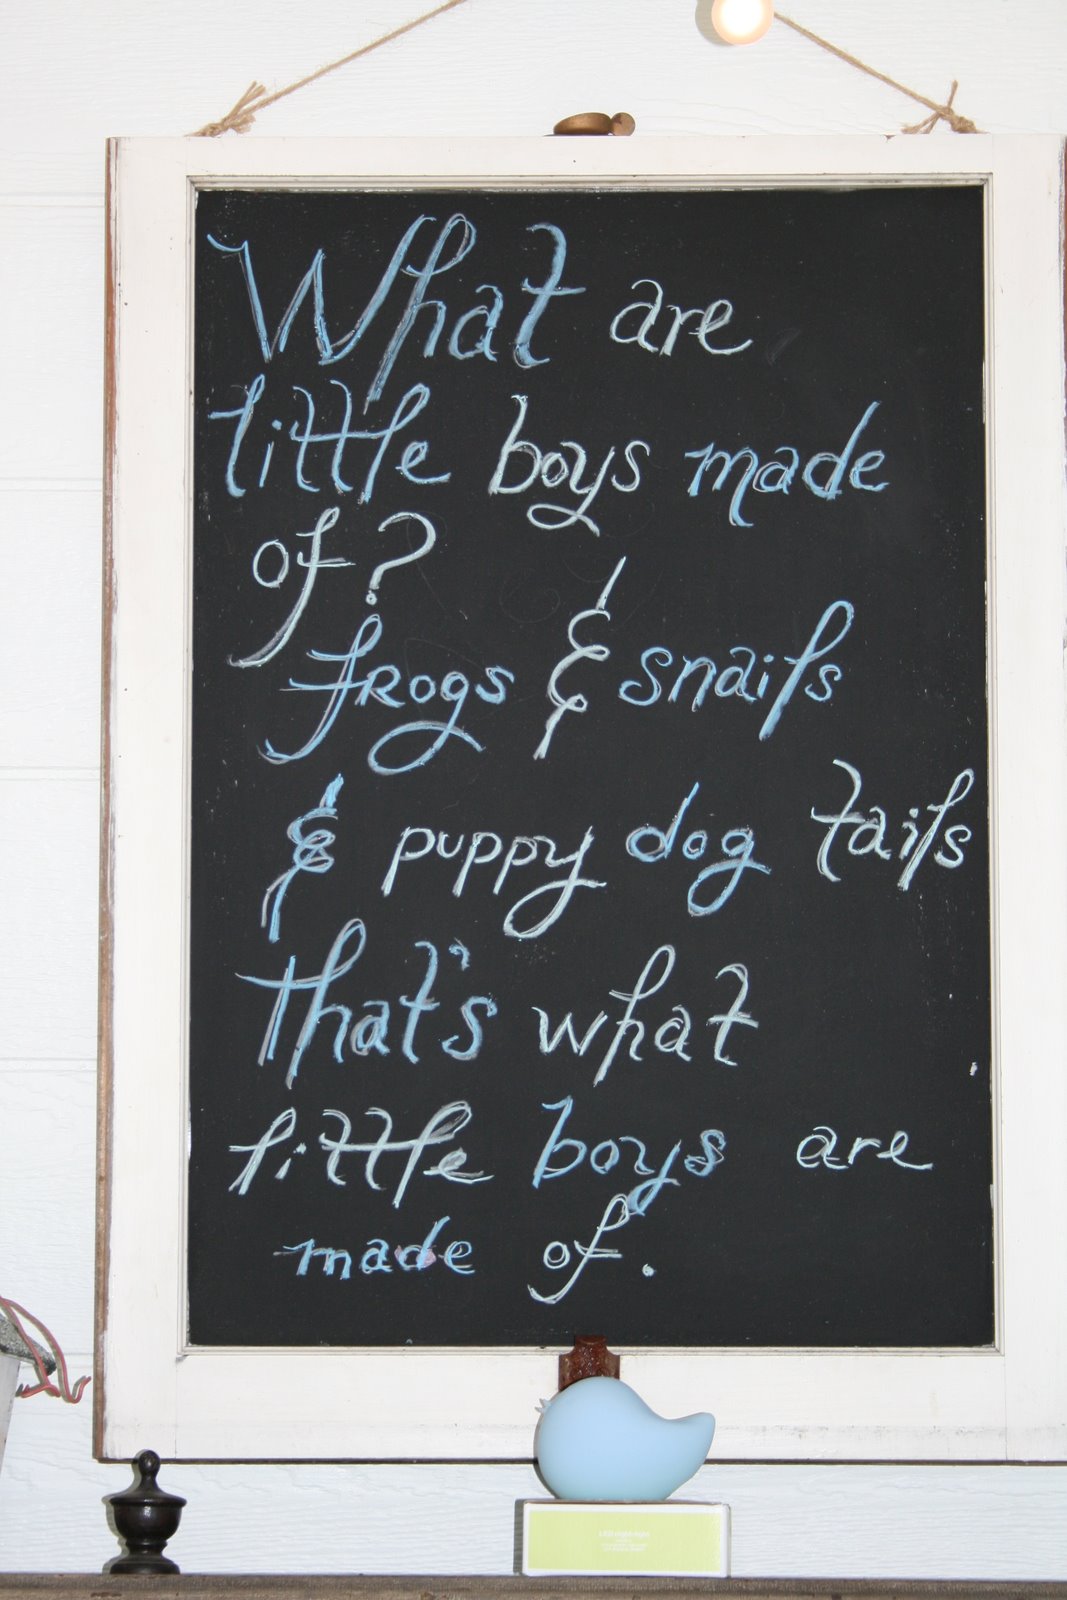 What are
little boys made
of?
frogs & snails
& puppy dog tails
that's what
little boys are
made of.
LED night-light